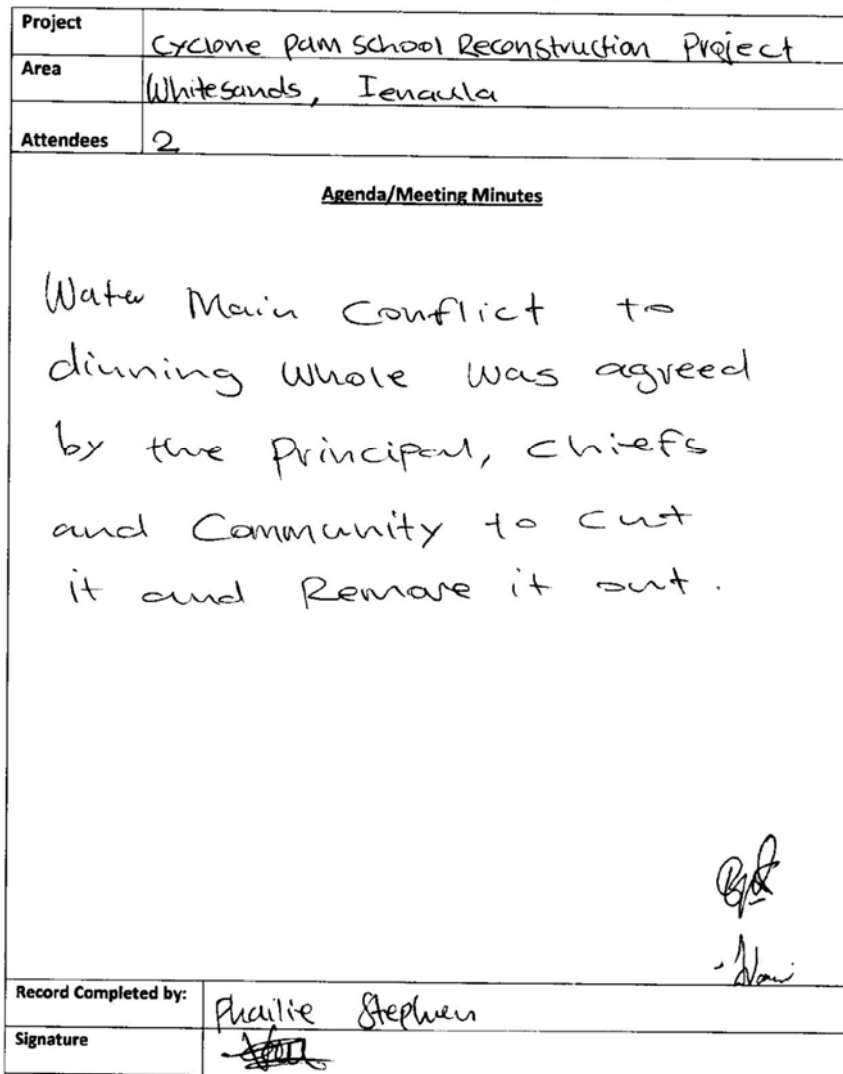 Project Cyclone Pam School Reconstruction Project
Area Whitesands, Ienaula
Attendees 2
Agenda/Meeting Minutes
Water Main Conflict to
dinning Whole was agreed
by the Principal, Chiefs
and Community to cut
it and Remove it out.
Record Completed by: Phailie Stephen
Signature